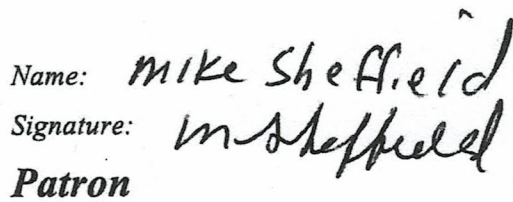 Name: Mike Sheffield
Signature: M Sheffield
Patron